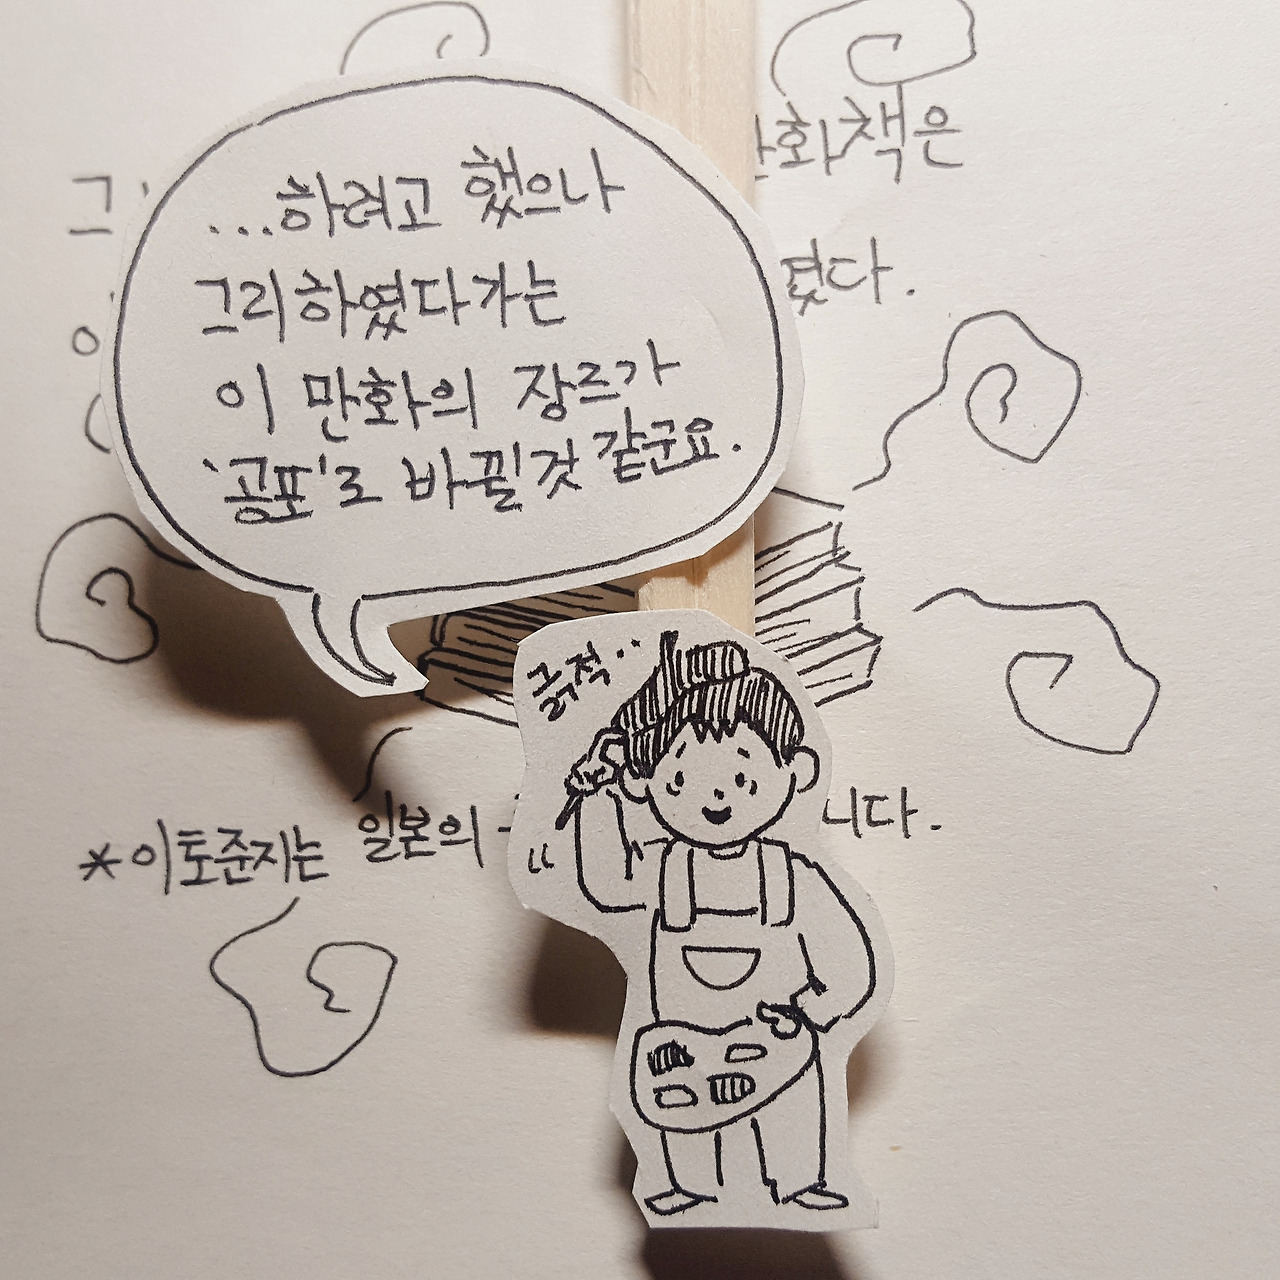 ...하려고 했으나
그리하였다가는
이 만화의 장르가
'공포'로 바뀔것 같군요.
긁적..
화책은
다.
*이토준지는 일본의
니다.